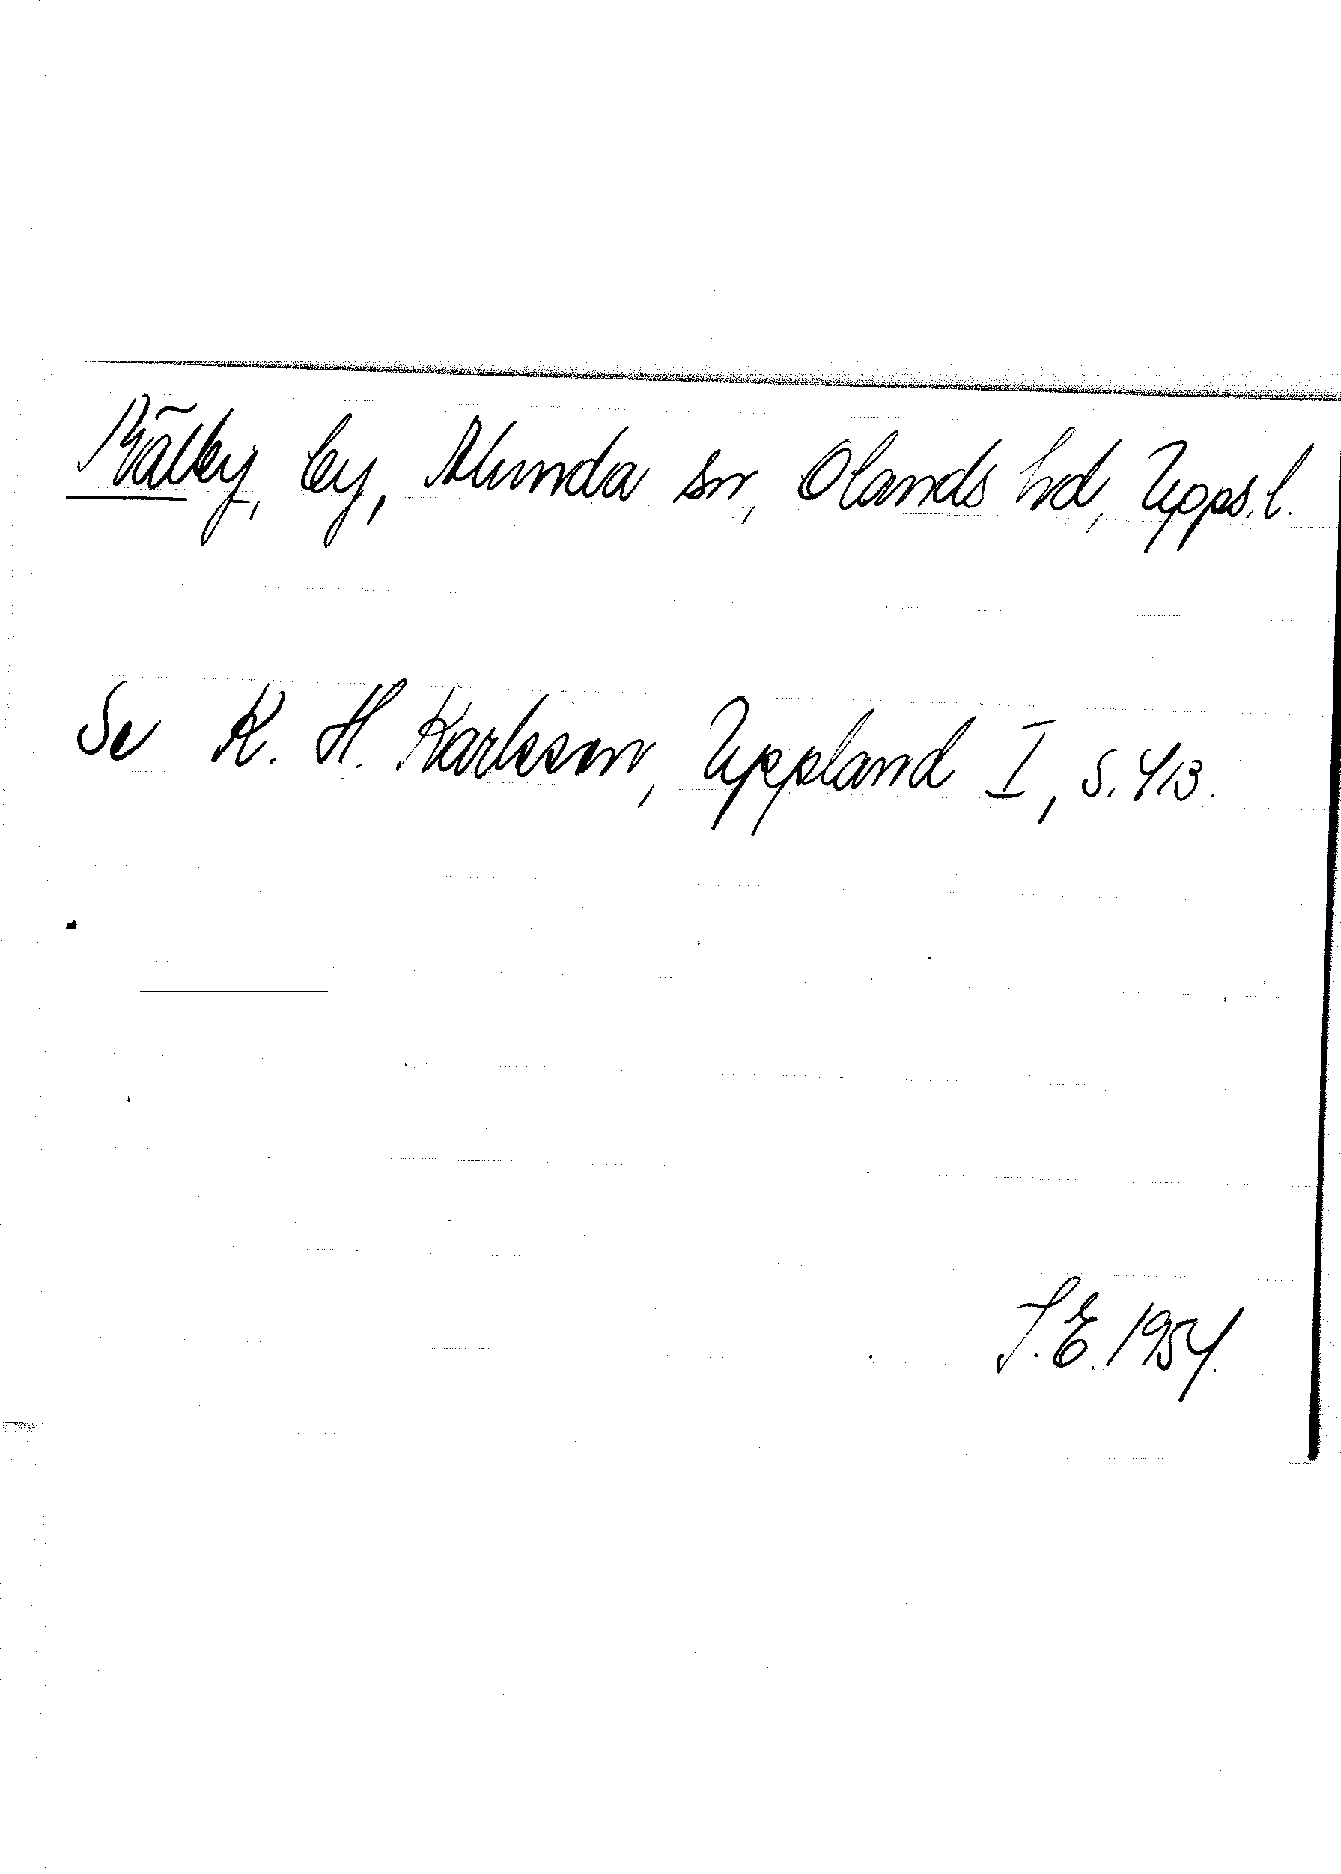 Rälby, by, Alunda sn, Olands hd, Upps. l.
Se K. H. Karlsson, Uppland I, s. 413.
S. E. 1954.